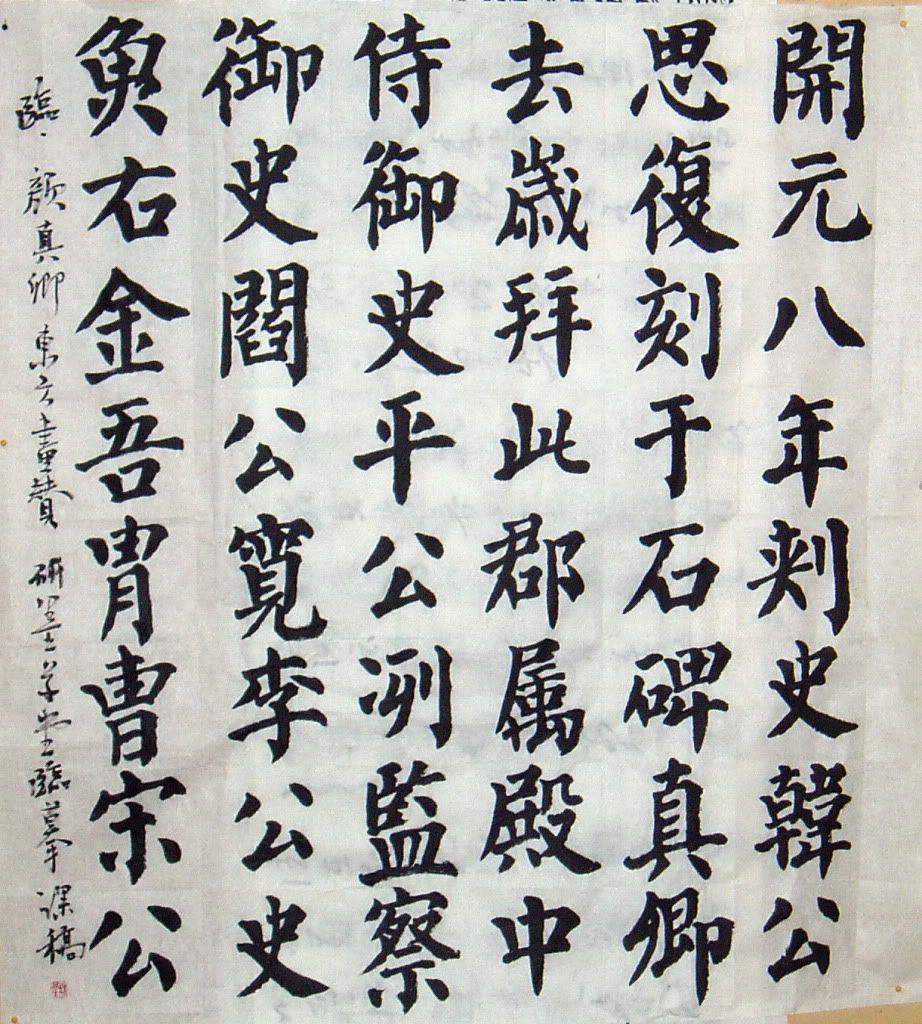 開元八年刾史韓公
思復刻于石碑真卿
去歳拜此郡属殿中
侍御史平公冽監察
御史閻公寛李公史
魚右金吾胄曹宋公
臨顔真卿東方畫贊 研墨草堂臨摹課稿